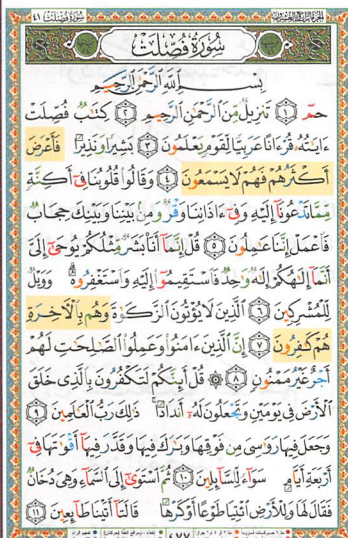 سُورَةُ فُصِّلَتْ ٤١
سُورَةُ فُصِّلَتْ
بِسْمِ ٱللَّهِ ٱلرَّحْمَٰنِ ٱلرَّحِيمِ
حمٓ ١ تَنزِيلٌ مِّنَ ٱلرَّحْمَٰنِ ٱلرَّحِيمِ ٢ كِتَٰبٌ فُصِّلَتْ
ءَايَٰتُهُۥ قُرْءَانًا عَرَبِيًّا لِّقَوْمٍ يَعْلَمُونَ ٣ بَشِيرًا وَنَذِيرًا فَأَعْرَضَ
أَكْثَرُهُمْ فَهُمْ لَا يَسْمَعُونَ ٤ وَقَالُوا۟ قُلُوبُنَا فِىٓ أَكِنَّةٍ
مِّمَّا تَدْعُونَآ إِلَيْهِ وَفِىٓ ءَاذَانِنَا وَقْرٌ وَمِنۢ بَيْنِنَا وَبَيْنِكَ حِجَابٌ
فَٱعْمَلْ إِنَّنَا عَٰمِلُونَ ٥ قُلْ إِنَّمَآ أَنَا۠ بَشَرٌ مِّثْلُكُمْ يُوحَىٰٓ إِلَىَّ
أَنَّمَآ إِلَٰهُكُمْ إِلَٰهٌ وَٰحِدٌ فَٱسْتَقِيمُوٓا۟ إِلَيْهِ وَٱسْتَغْفِرُوهُ ۗ وَوَيْلٌ
لِّلْمُشْرِكِينَ ٦ ٱلَّذِينَ لَا يُؤْتُونَ ٱلزَّكَوٰةَ وَهُم بِٱلْءَاخِرَةِ
هُمْ كَٰفِرُونَ ٧ إِنَّ ٱلَّذِينَ ءَامَنُوا۟ وَعَمِلُوا۟ ٱلصَّٰلِحَٰتِ لَهُمْ
أَجْرٌ غَيْرُ مَمْنُونٍ ٨ ۞ قُلْ أَئِنَّكُمْ لَتَكْفُرُونَ بِٱلَّذِى خَلَقَ
ٱلْأَرْضَ فِى يَوْمَيْنِ وَتَجْعَلُونَ لَهُۥٓ أَندَادًا ۚ ذَٰلِكَ رَبُّ ٱلْعَٰلَمِينَ ٩
وَجَعَلَ فِيهَا رَوَٰسِىَ مِن فَوْقِهَا وَبَٰرَكَ فِيهَا وَقَدَّرَ فِيهَآ أَقْوَٰتَهَا فِىٓ
أَرْبَعَةِ أَيَّامٍ سَوَآءً لِّلسَّآئِلِينَ ١٠ ثُمَّ ٱسْتَوَىٰٓ إِلَى ٱلسَّمَآءِ وَهِىَ دُخَانٌ
فَقَالَ لَهَا وَلِلْأَرْضِ ٱئْتِيَا طَوْعًا أَوْ كَرْهًا قَالَتَآ أَتَيْنَا طَآئِعِينَ ١١
٤٧٧